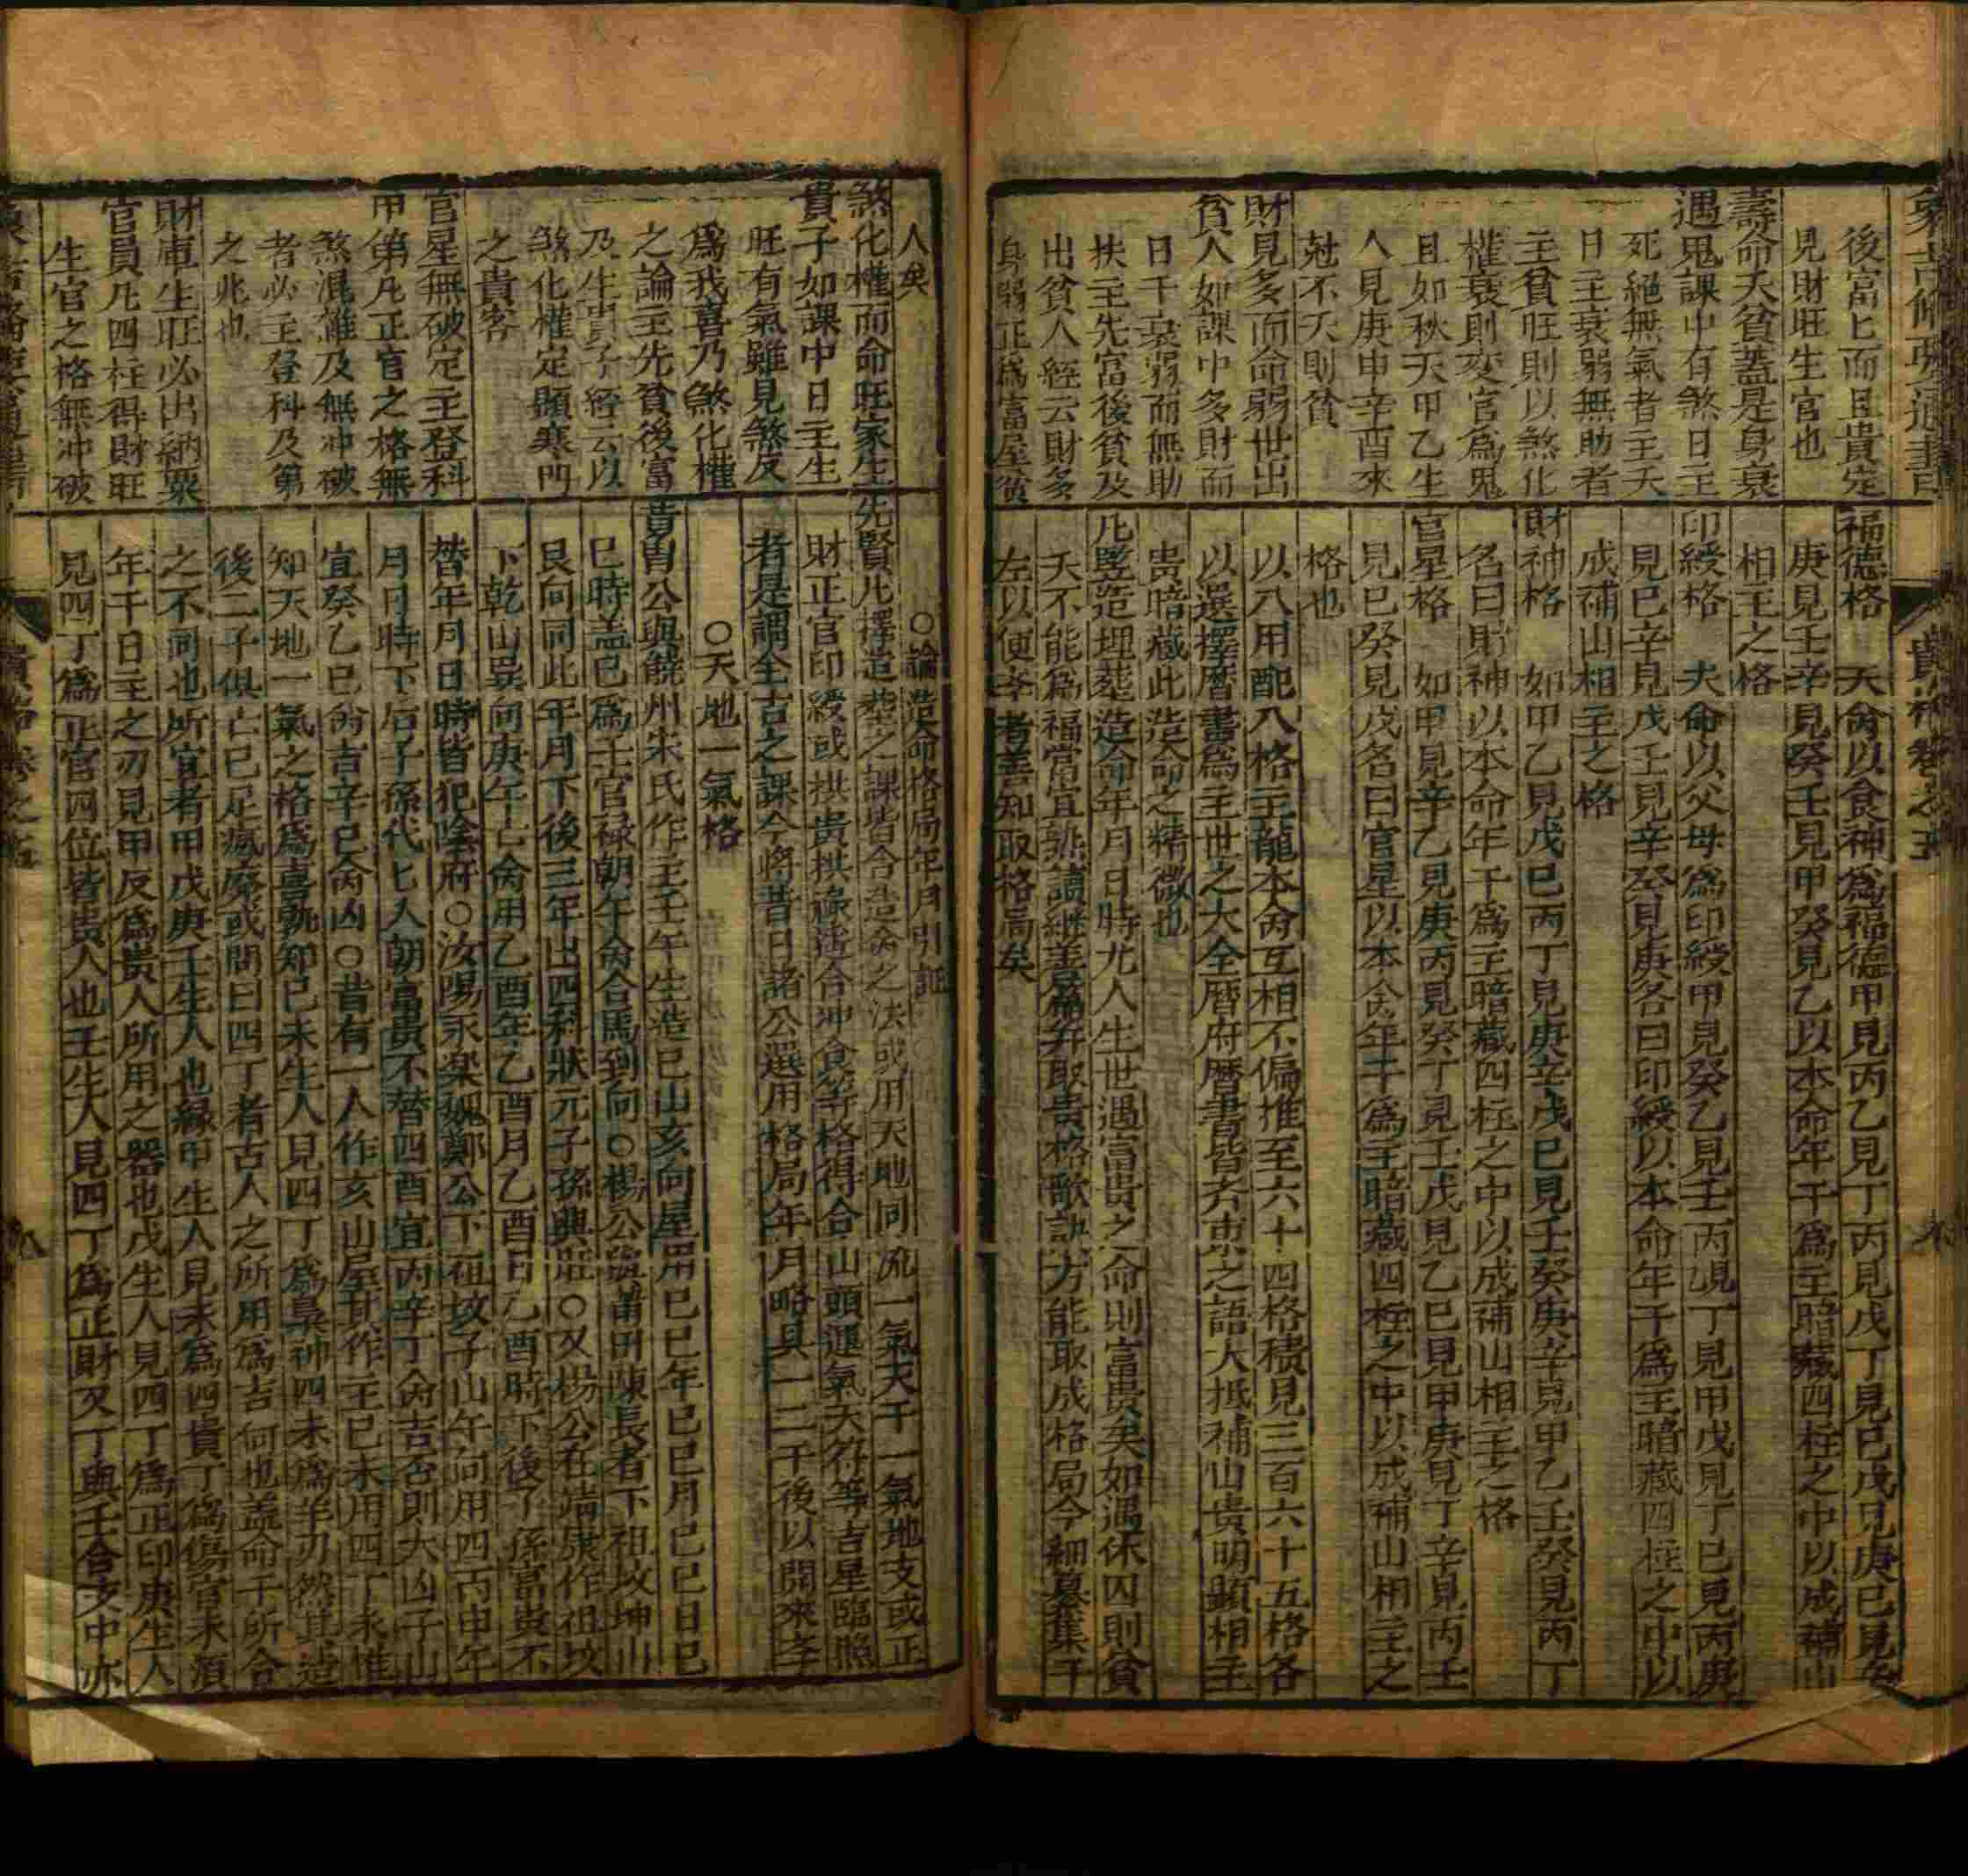 後富匕而且貴定
見財旺生官也
壽命夭貧蓋是身衰
遇鬼課中有煞日主
死絕無氣者主夭
日主衰弱無助者
主貧旺則以煞化
權衰則变官為鬼
且如秋天甲乙生
人見庚申辛酉來
尅不夭則貧
財見多而命弱世出
貧人如課中多財而
日干衰弱而無助
扶主先富後貧及
出貧人経云財多
身弱正為富屋貧
福德格 夭命以食神為福德甲見丙乙見丁丙見戊丁見己戊見庚己見辛
庚見壬辛見癸壬見甲癸見乙以本命年干為主暗藏四柱之中以成補山
相主之格
印綬格 夫命以父母為印綬甲見癸乙見壬丙見丁見甲戊見丁己見丙庚
見己辛見戊壬見辛癸見庚各曰印綬以本命年干為主暗藏四柱之中以
成補山相主之格
財神格 如甲乙見戊己丙丁見庚辛戊己見壬癸庚辛見甲乙壬癸見丙丁
名曰財神以本命年干為主暗藏四柱之中以成補山相主之格
官星格 如甲見辛乙見庚丙見癸丁見壬戊見乙己見甲庚見丁辛見丙壬
見己癸見戊名曰官星以本命年干為主暗藏四柱之中以成補山相主之
格也
以八用配八格主龍本命互相不偏推至六十四格積見三百六十五格各
以選擇曆書為主世之大全曆府曆書皆有之語大抵補山貴明顯相主
貴暗藏此造命之精微也
凡豎造埋葬造命年月日時尤人生世遇富貴之命則富貴矣如遇休囚則貧
夭不能為福當宜熟讀継善篇并取貴格歌訣方能取成格局今細纂集于
左以便孝者善知取格局矣
貴格卷之五
人矣
煞化權而命旺家生
貴子如課中日主生
旺有氣雖見煞反
為我喜乃煞化權
之論主先貧後富
及生貴子経云以
煞化權定顯寒門
之貴客
官星無破定主登科
甲第凡正官之格無
煞混雜及無冲破
者必主登科及第
之兆也
財庫生旺必出納粟
官員凡四柱得財旺
生官之格無冲破
○論造命格局年月引証
先賢凡擇造塟之課皆合造命之法或用天地同流一氣天干一氣地支或正
財正官印綬或拱貴拱祿遙合冲食等格得合山頭進氣天符等吉星臨照
者是謂全吉之課今將昔日諸公選用格局年月略具一二于後以開來孝
○天地一氣格
曽公與饒州宋氏作主壬午生造巳山亥向屋用己巳年己巳月己巳日己
巳時盖巳為壬官禄朝午命合馬到向○楊公為莆田陳長者下祖坟坤山
艮向同此年月下後三年出四科狀元子孫興旺○又楊公在端康作祖坟
下乾山巽向庚午亡命用乙酉年乙酉月乙酉日乙酉時下後子孫富貴不
替年月日時皆犯陰府○汝陽永楽魏鄭公下祖坟子山午向用四丙申年
月日時下后子孫代匕入朝富貴不替四酉宜丙辛丁命吉否則大凶子山
宜癸乙巳命吉辛巳命凶○昔有一人作亥山屋其作主己未用四丁未惟
知天地一氣之格為喜孰知己未生人見四丁為梟神四未為羊刃然其造
後二子俱亡己足瘋廢或問曰四丁者古人之所用為吉何也盖命于所合
之不同也所宜者甲戊庚壬生人也緣甲生人見未為四貴丁為傷官未須
年干日主之刃見甲反為貴人所用之器也戊生人見四丁為正印庚生人
見四丁為正官四位皆貴人也壬生人見四丁為正財又丁與壬合支中亦